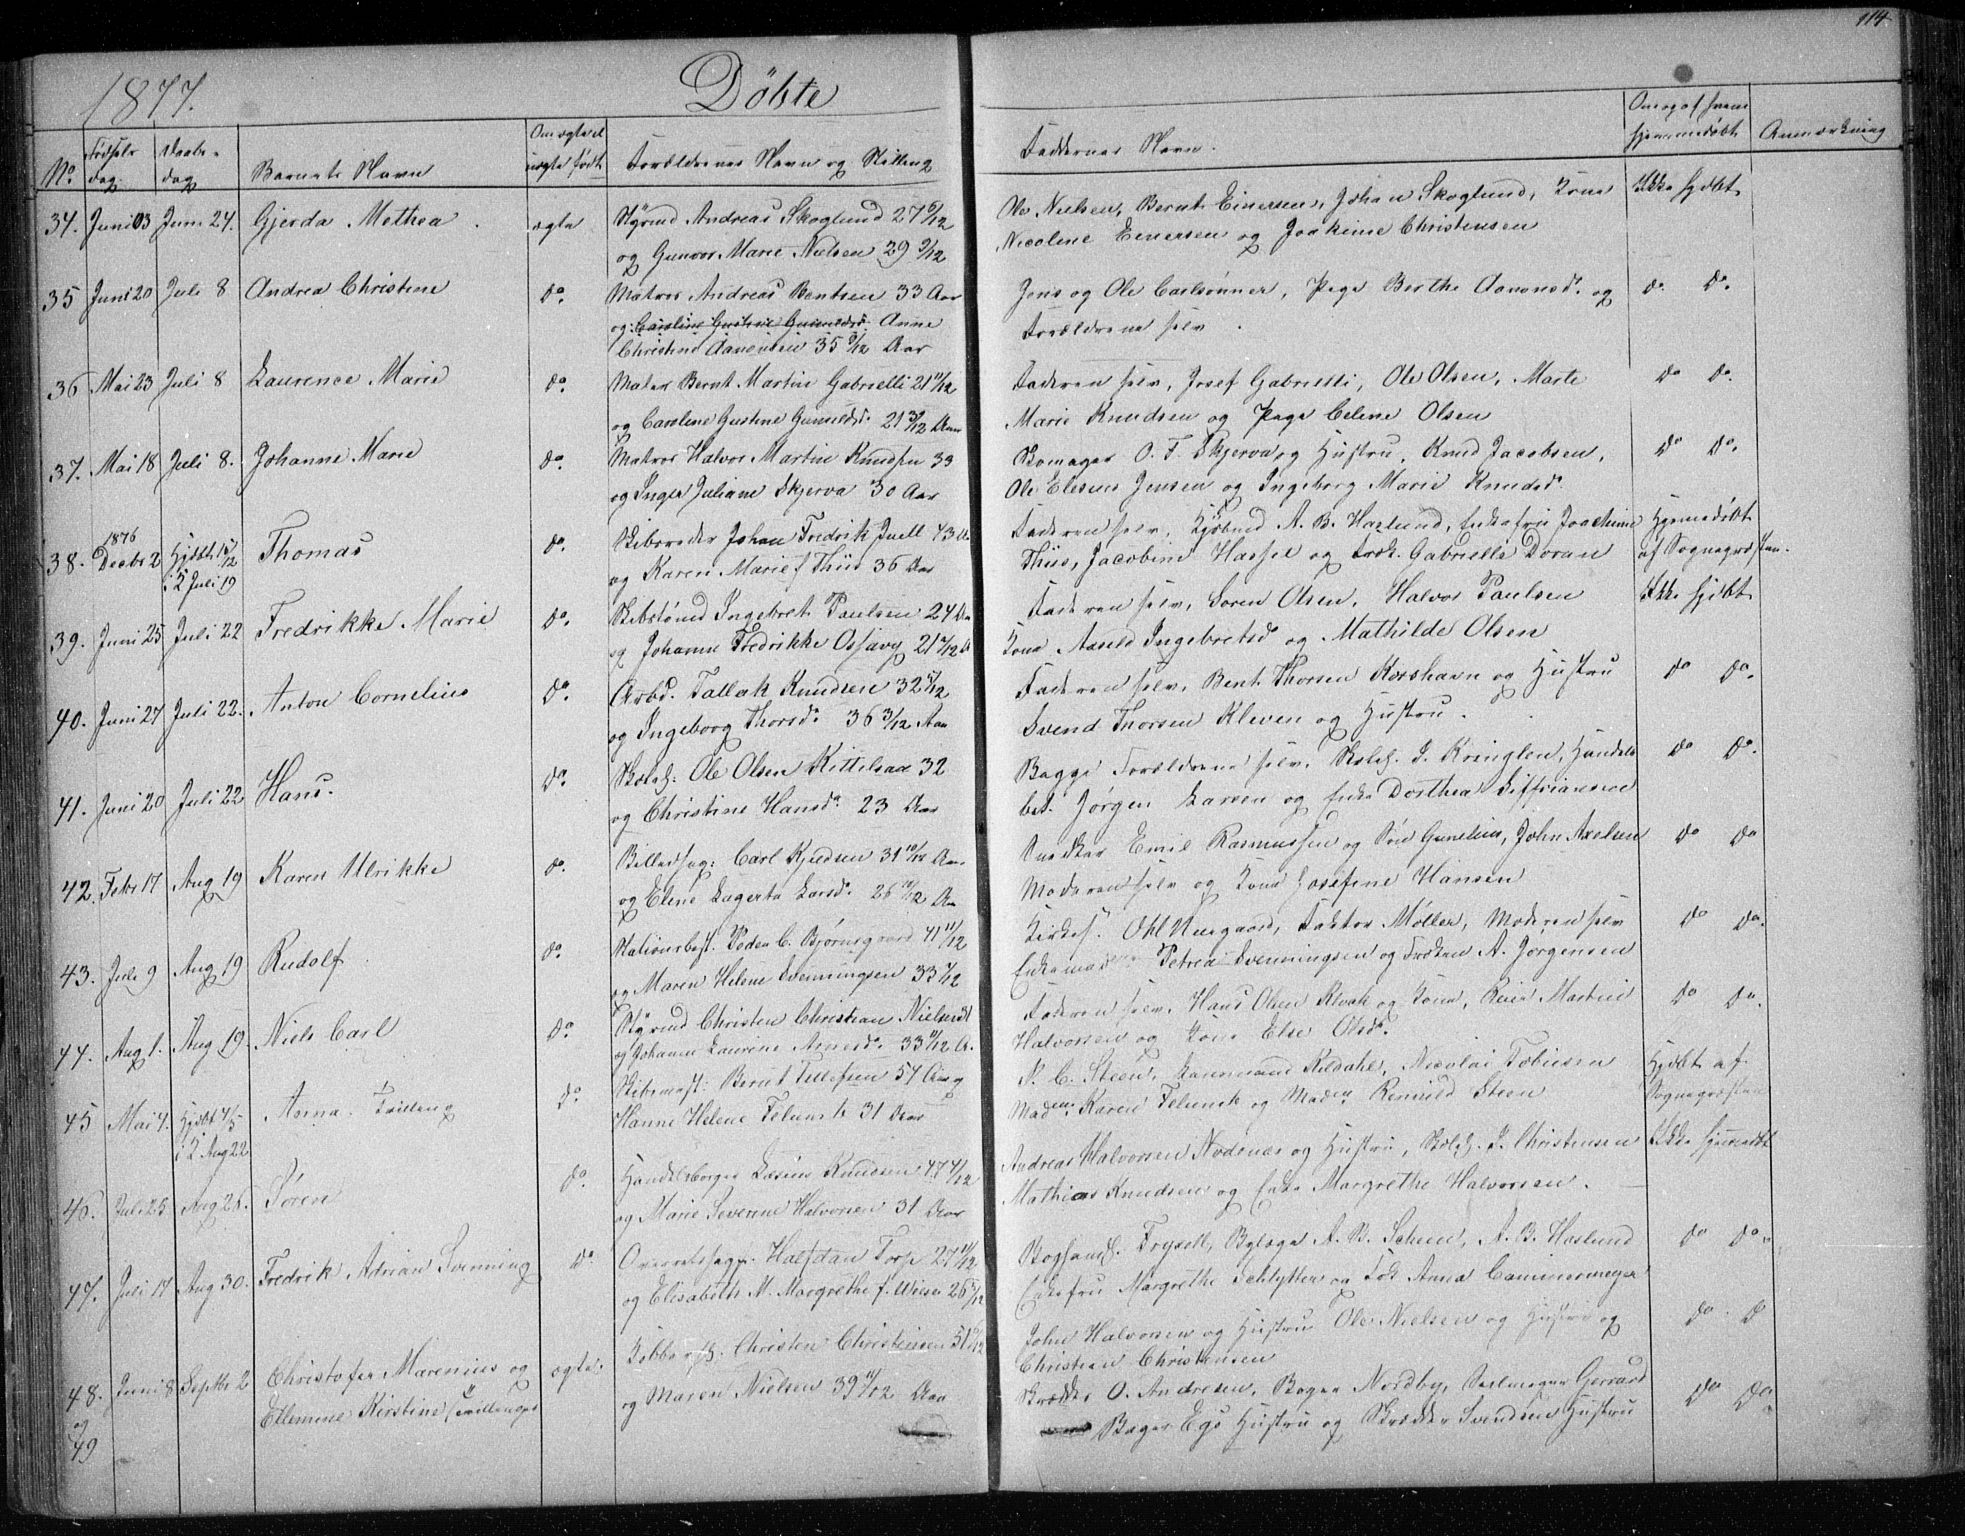 114
1877.
Döbte
No
Fødsels dag.
Daabs-dag
Barnets Navn
Om ægte el. uægte født
Forældrenes Navn og Stilling
Faddernes Navn.
Om og af hvem hjemmedøbt
Anmærkning
34. Juni 03 Juni 24. Gjerda Methea. ægte Styrmd Andreas Skoglund 27 6/12
og Gunvor Marie Nielsen 29 9/12
Ole Nielsen, Bernt Einersen, Johan Skoglund, Kone
Nicoline Einersen og Joakime Christensen
Ikke hjdbt
35 Juni 20 Juli 8 Andrea Christine do. Matros Andreas Bentsen 33 Aar
og Caroline Gustine Gunuldsd. Anne
Christine Aanonsen 35 9/12 Aar
Jens og Ole Carlsønner, Pige Berthe Aanonsd. og
Forældrene selv.
do do.
36 Mai 23 Juli 8 Laurence Marie do. Maler Bernt Martin Gabrielli 21 11/12
og Caroline Gustine Gunuldsd. 21 3/12 Aar
Faderen selv, Josef Gabrielli, Ole Olsen, Marte
Marie Knudsen og Pige Celene Olsen
do do.
37. Mai 18 Juli 8. Johanne Marie do. Matros Halvor Martin Knudsen 33
og Inger Juliane Skjerva 30 Aar
Skomager O. T. Skjerva og Hustru, Knud Jacobsen,
Ole Elesius Jensen og Ingeborg Marie Knudsd.
do do.
38. 1876 Decbr 2 Hjdbt 15/12 i K Juli 19 Thomas do. Skibsreder Johan Fredrik Juell 43 A
og Karen Marie f Thiis 36 Aar
Faderen selv, Kjøbmd A. B. Haslund, Enkefru Joachime
Thiis, Jacobine Hassel og Frøk. Gabrielle Doran
Hjemmedøbt
af Sognepræsten.
39. Juni 25 Juli 22 Fredrikke Marie do. Skibstømd Ingebret Paulsen 24 Aar
og Johanne Fredrikke Osfavg 21 7/12 A
Faderen selv, Soren Olsen, Halvor Paulsen
Kone Aasild Ingebretsd og Mathilde Olsen
Ikke hjdbt
40. Juni 27 Juli 22. Anton Cornelius do. Arbd. Tallak Knudsen 32 5/12
og Ingeborg Thorsd. 36 3/12 Aar
Faderen selv, Bent Thorsen Korshavn og Hustru
Svend Thorsen Kleven og Hustru.
do do.
41. Juni 20 Juli 22 Hans. do. Skolel. Ole Olsen Kittelsaa 32
og Christine Hansd. 23 Aar
Begge Forældrene selv. Skolel. J. Kringlen, Handels
bet. Jørgen Larsen og Enke Dorthea
do do.
42. Febr 17 Aug 19 Karen Ulrikke do. Billedhug: Carl Kjeldsen 31 10/12 Aar
og Elene Lagerta Larsd. 26 10/12 Aar
Snedker Emil Rasmussen og Søn Gunelius, John Axelsen
Moderen selv og Kone Josefine Hansen
do do
43. Juli 9 Aug 19 Rudolf. do. Stationsbest. Peder C. Bjørnsgaard 41 11/12
og Maren Helene Svenningsen 33 7/12
Kirkes. Ohl Nuegaard, Faktor Møller, Moderen selv
Enkemad Petrea Svenningsen og Frøken A. Jørgensen
do do.
44. Aug 1. Aug 19. Niels Carl do. Styrmd Christen Christian Nielsen
og Johanne Laurine Arnesd. 33 11/12 A.
Faderen selv, Hans Olsen Klvak og Kone, Reier Martin
Halvorsen og Kone Else Olsd.
do do.
45 Mai 4. Hjdbt 4/5 i K Aug 22 Anna. Tvilling do. Skibsmægl: Bernt Tellefsen 57 Aar og
Hanne Helene Felumb 31 Aar
N. C. Steen, Kaupmand Kildahl, Nicolai Tobiesen
Maden Karen Felumb og Maden Remild Steen
Hjdbt af
Sognepræsten
46. Juli 25 Aug 26. Søren do. Handelsborger Lasius Knudsen 47 4/12
og Marie Severine Halvorsen 31 Aar
Andreas Halvorsen Nodenæs og Hustru, Skolel. J. Christensen
Mathias Knudsen og Enke Margrethe Halvorsen.
Ikke hjemmedbt
47. Juli 17 Aug 30. Fredrik Adrian Svenning do Overretssagf. Halfdan Torp 27 11/12
og Elisabeth M. Margrethe f. Wiese 26 5/12
Boghandl. Frysell, Bylæge A. B. Scheen, A. B. Haslund
Enkefru Margrethe Schlytter og Frk Anna Cammermeyer
do do.
48. og 49 Juni 8 Septbr 2 Christofer Marenius og
Ellemine Kirstine (Tvillinger ægte. Christen Christensen 51
og Maren Nielsen 39 11/12 Aar
John Halvorsen og Hustru Ole Nielsen og Hustru og
Christian Christensen
do. do
Skrædder O. Andresen, Bager Nordby, Seilmager Gerrard
Bager Egs Hustru og Skrædder Svendsens Hustru
do do.